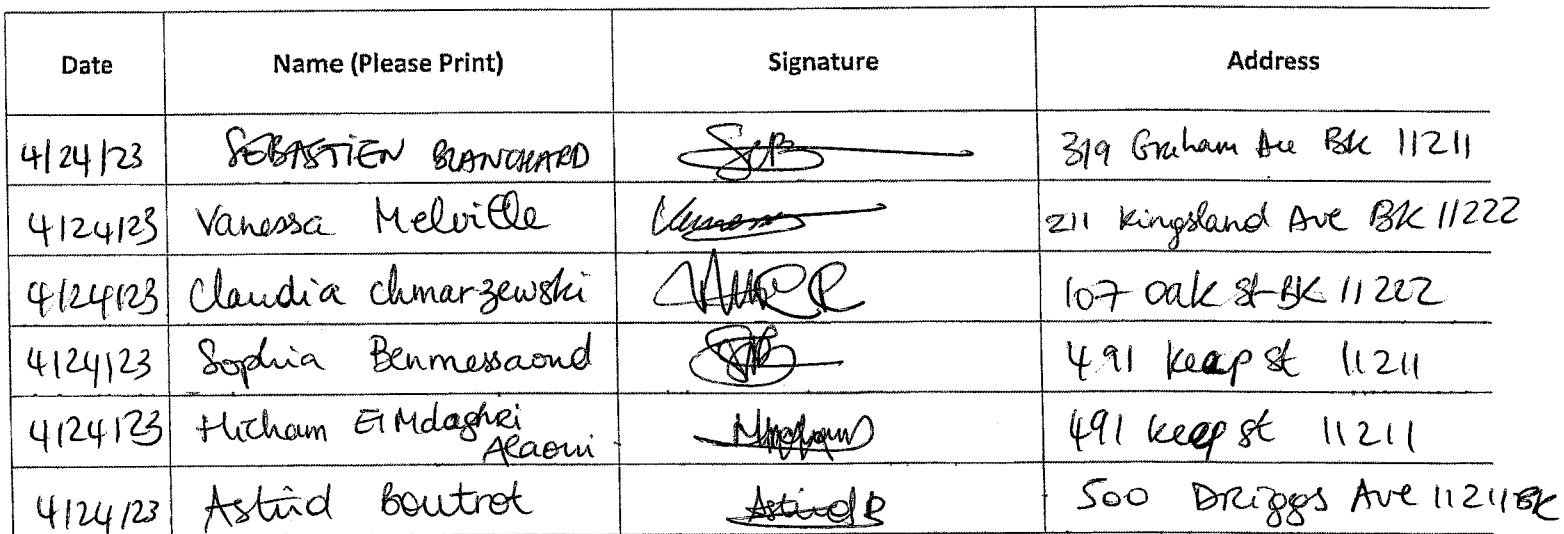 Date Name (Please Print) Signature Address
4/24/23 SEBASTIEN BLANCHARD SCB 319 Graham Ave BK 11211
4/24/23 Vanessa Melville 211 Kingsland Ave BK 11222
4/24/23 Claudia Chmarzewski 107 Oak St BK 11222
4/24/23 Sophia Benmessaoud 491 Keap st 11211
4/24/23 Hicham El Mdaghri
Alaoui 491 Keap st 11211
4/24/23 Astrid Boutrot Astrid B 500 DRiggs Ave 11211 BK